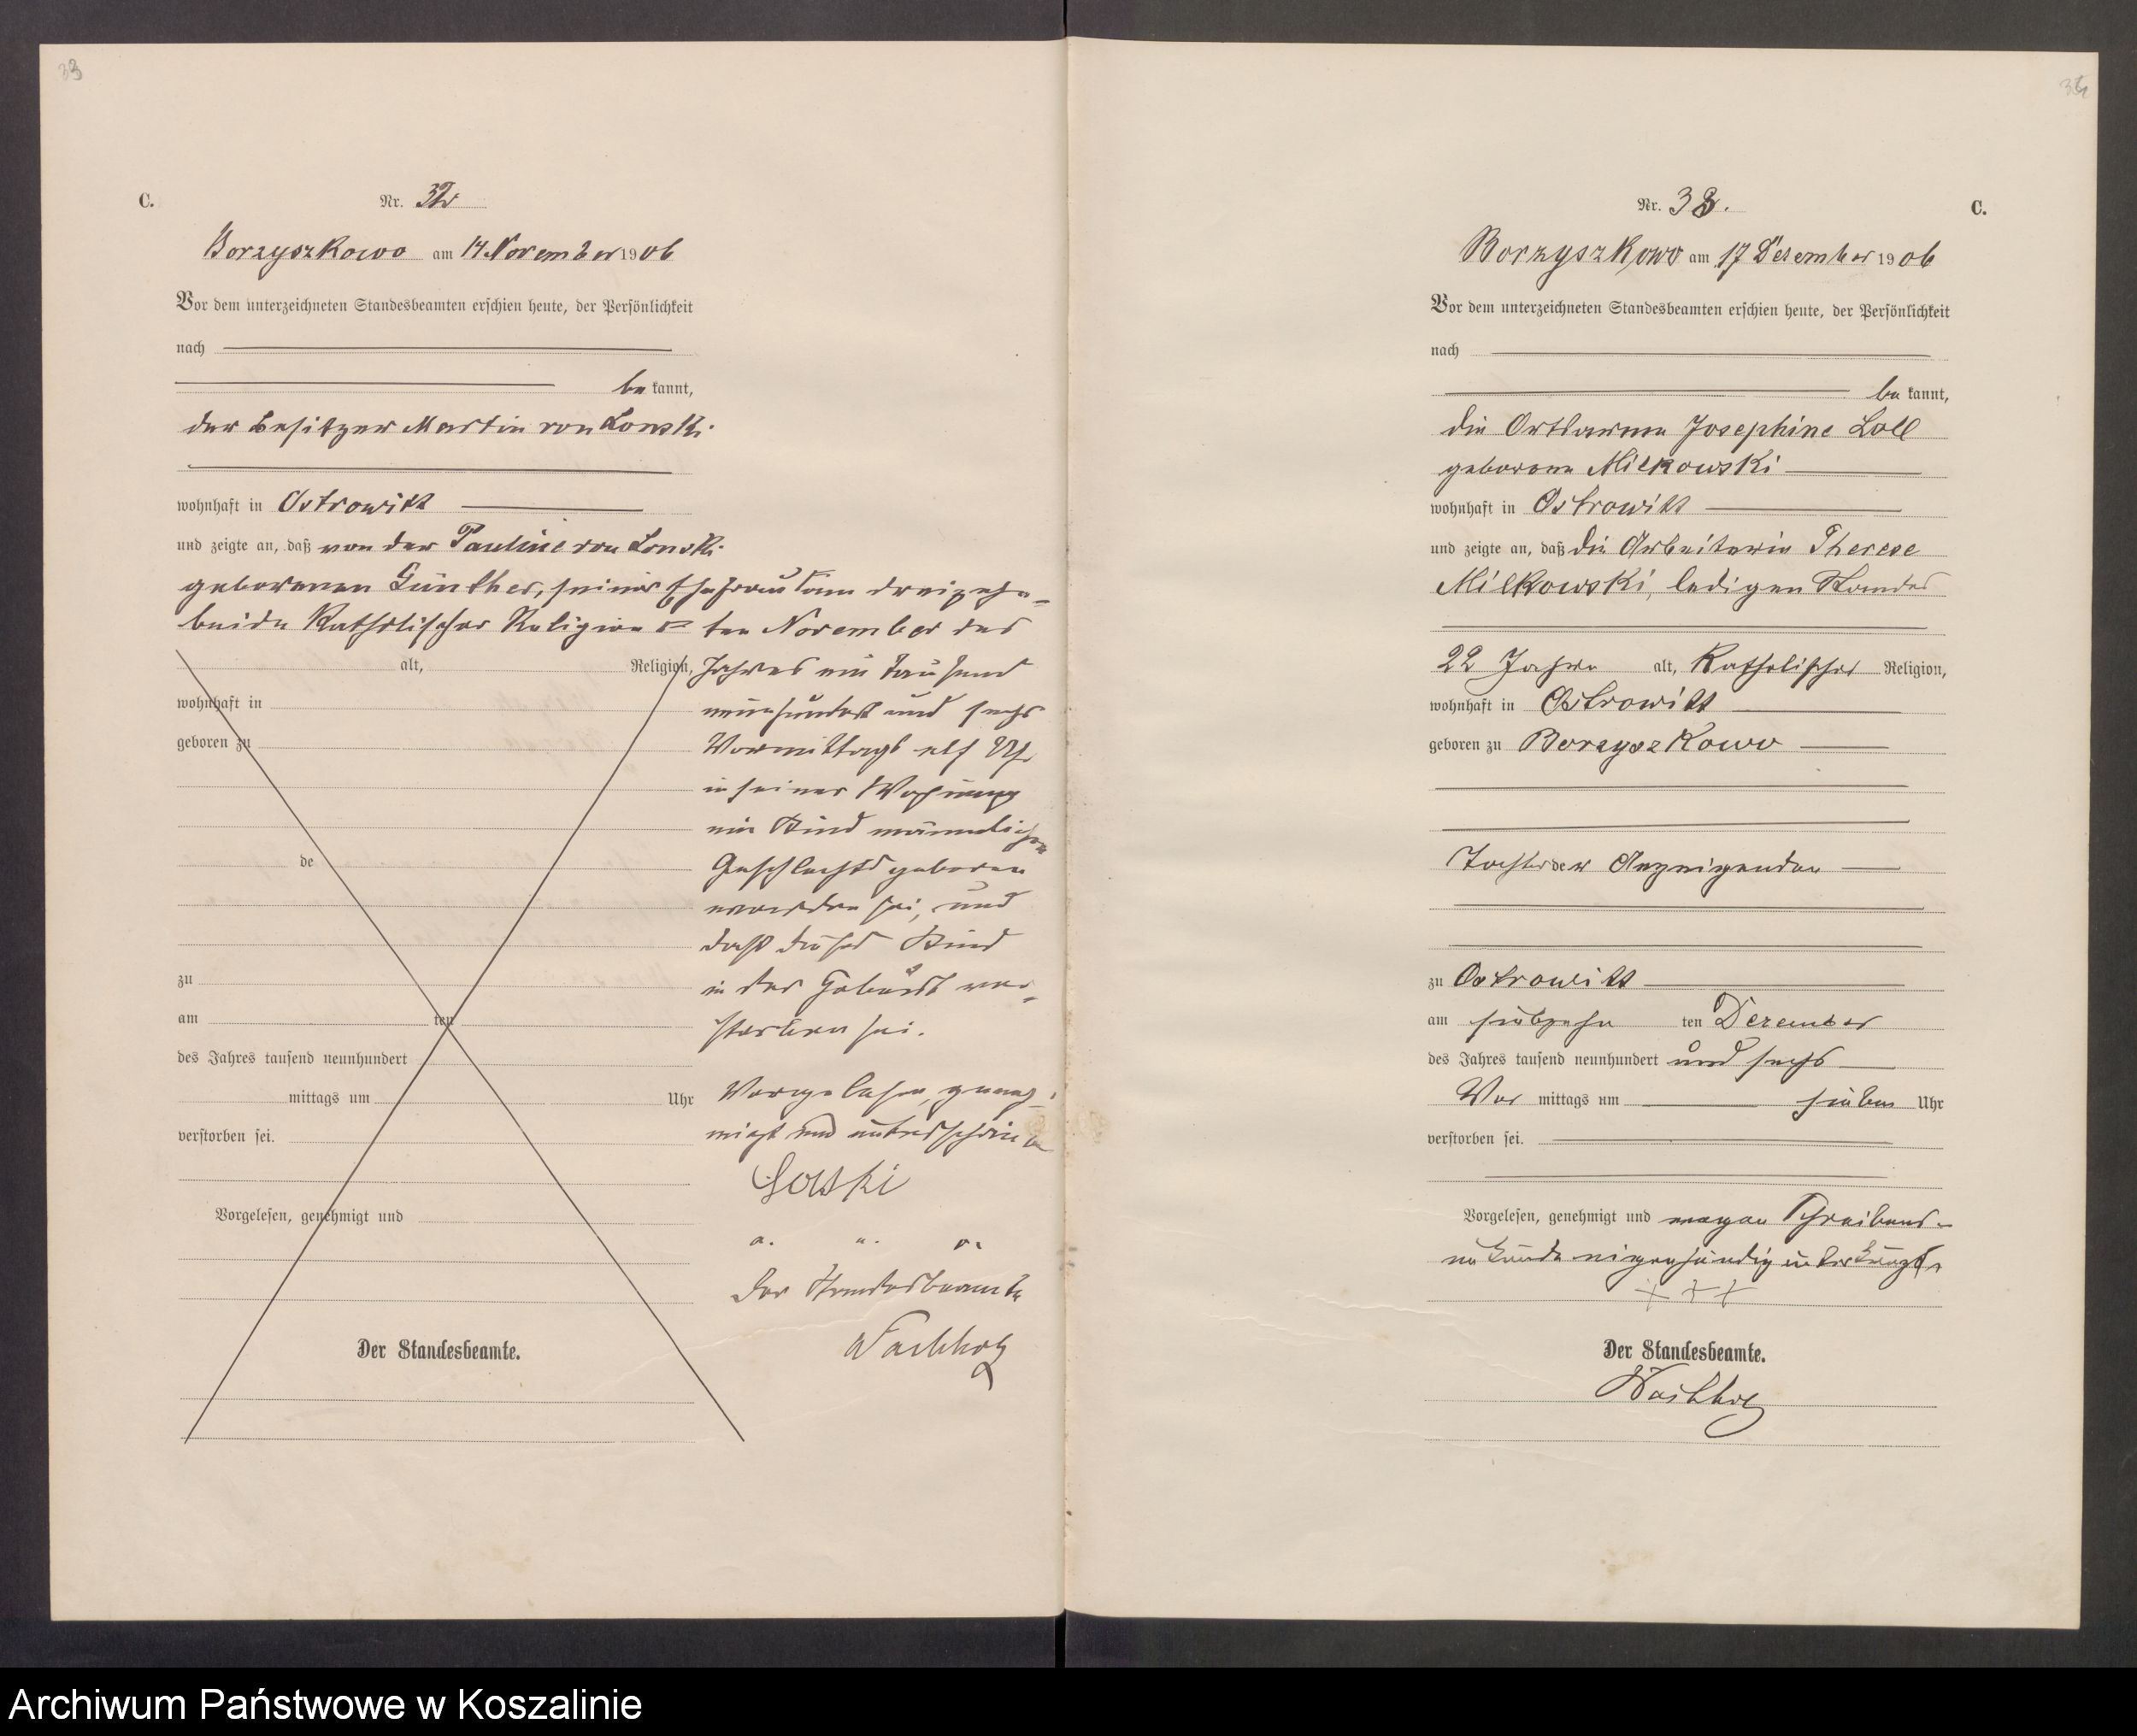 33
C.
Nr. 32
Borzyszkowo am 14. November 1906
Vor dem unterzeichneten Standesbeamten erschien heute, der Persönlichkeit
nach
be kannt,
der Besitzer Martin von Lonski
wohnhaft in Ostrowitt
und zeigte an, daß von der Pauline von Lonski
geborenen Günther, seiner Ehefrau am dreizehn-
beide Katholischer Religion ten November des
alt, Religion, Jahres ein tausend
wohnhaft in neunhundert und sechs
geboren zu Vormittags elf Uhr
in seiner Wohnung
ein Kind männlichen
de Geschlechts geboren
worden sei, und
daß dieses Kind
zu in der Geburt ver-
am ten storben sei.
des Jahres tausend neunhundert
mittags um Uhr Vorgelesen, geneh-
verstorben sei. migt und unterschrieben
Lonski
Vorgelesen, genehmigt und
a. u. o.
Der Standesbeamte
Der Standesbeamte.
34
Nr. 33.
C.
Borzyszkowo am 17 Dezember 1906
Vor dem unterzeichneten Standesbeamten erschien heute, der Persönlichkeit
nach
be kannt,
die Ortsarme Josephine Loll
geborene Milkowski
wohnhaft in Ostrowitt
und zeigte an, daß die Arbeiterin Therese
Milkowski, ledigen Standes
22 Jahre alt, Katholischer Religion,
wohnhaft in Ostrowitt
geboren zu Borzyszkowo
Tochter der Anzeigenden
zu Ostrowitt
am siebzehn ten Dezember
des Jahres tausend neunhundert und sechs
Vor mittags um sieben Uhr
verstorben sei.
Vorgelesen, genehmigt und wegen Schreibens-
unkunde eigenhändig unterkreuzt.
+++
Der Standesbeamte.
Archiwum Państwowe w Koszalinie